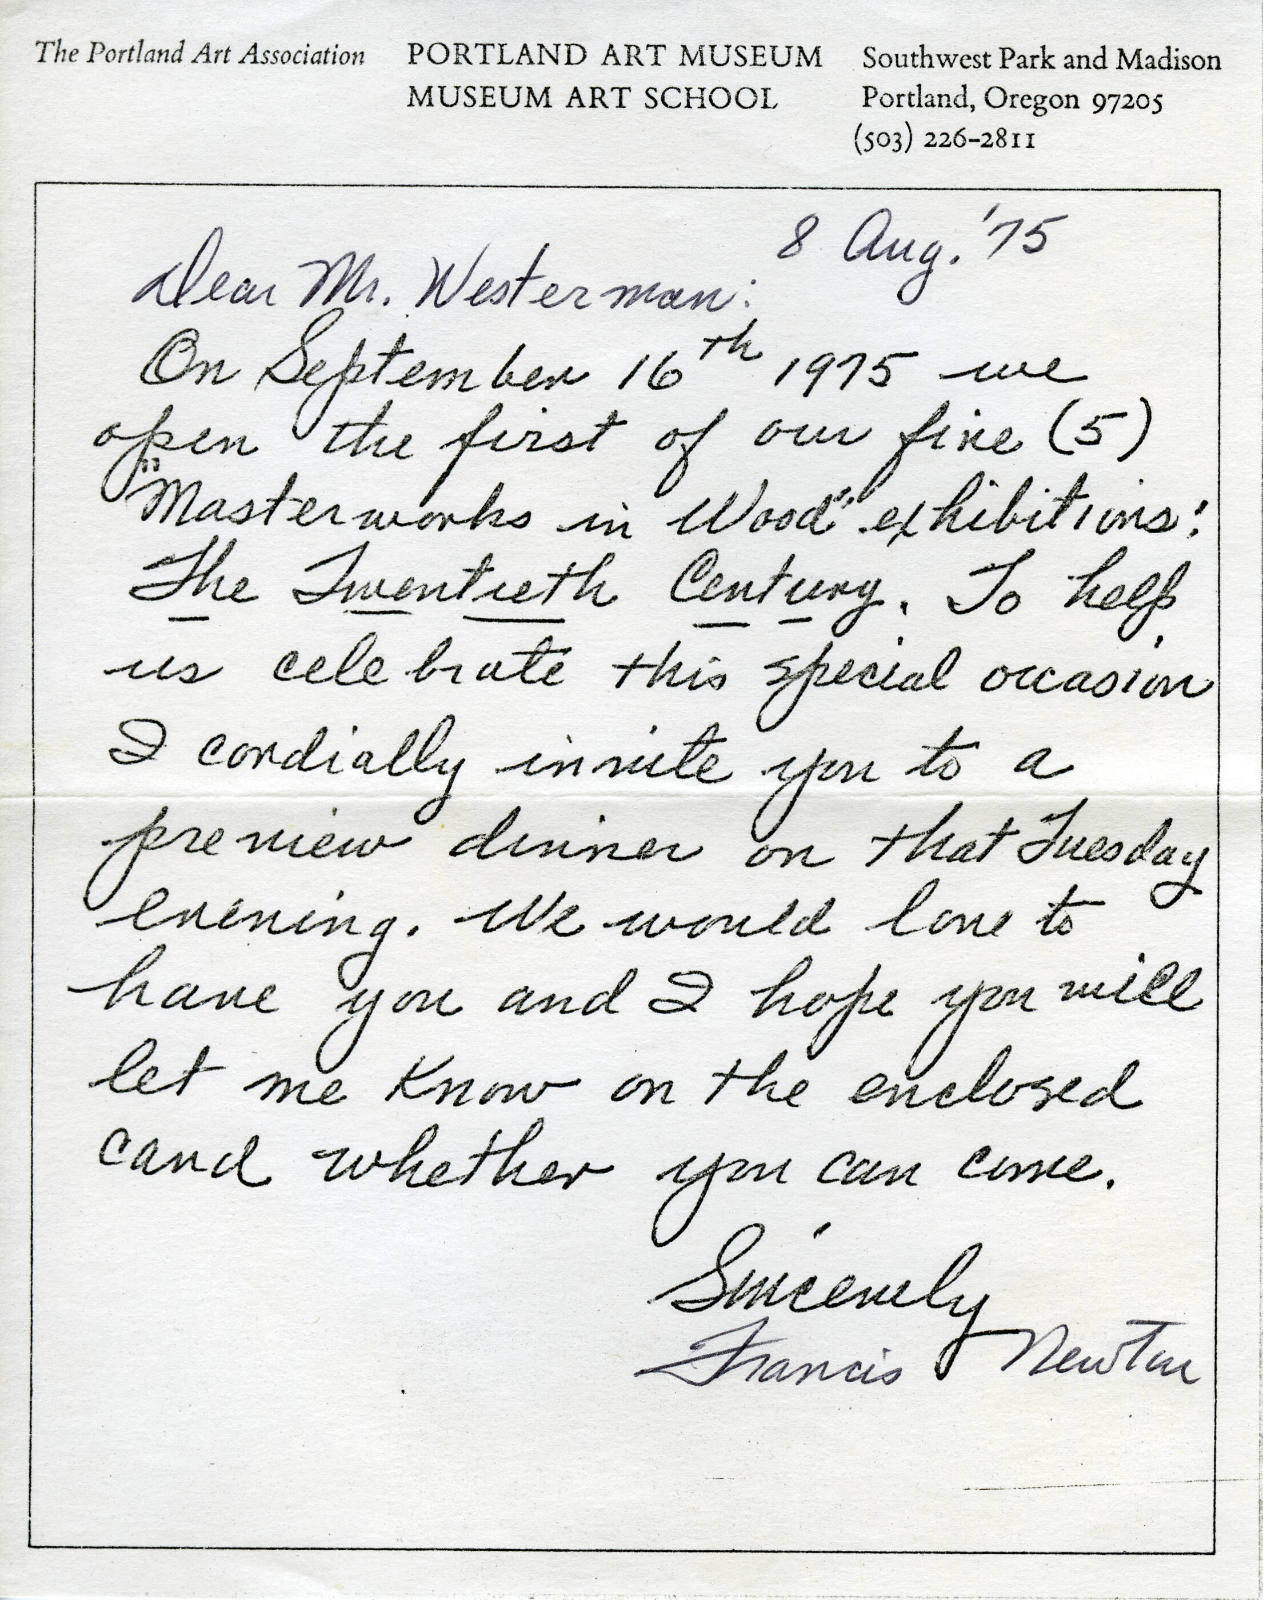 The Portland Art Association
PORTLAND ART MUSEUM
MUSEUM ART SCHOOL
Southwest Park and Madison
Portland, Oregon 97205
(503) 226-2811
8 Aug. '75
Dear Mr. Westerman:
On September 16th 1975 we
open the first of our five (5)
"Masterworks in Wood" exhibitions:
The Twentieth Century. To help
us celebrate this special occasion
I cordially invite you to a
preview dinner on that Tuesday
evening. We would love to
have you and I hope you will
let me know on the enclosed
card whether you can come.
Sincerely
Francis Newton